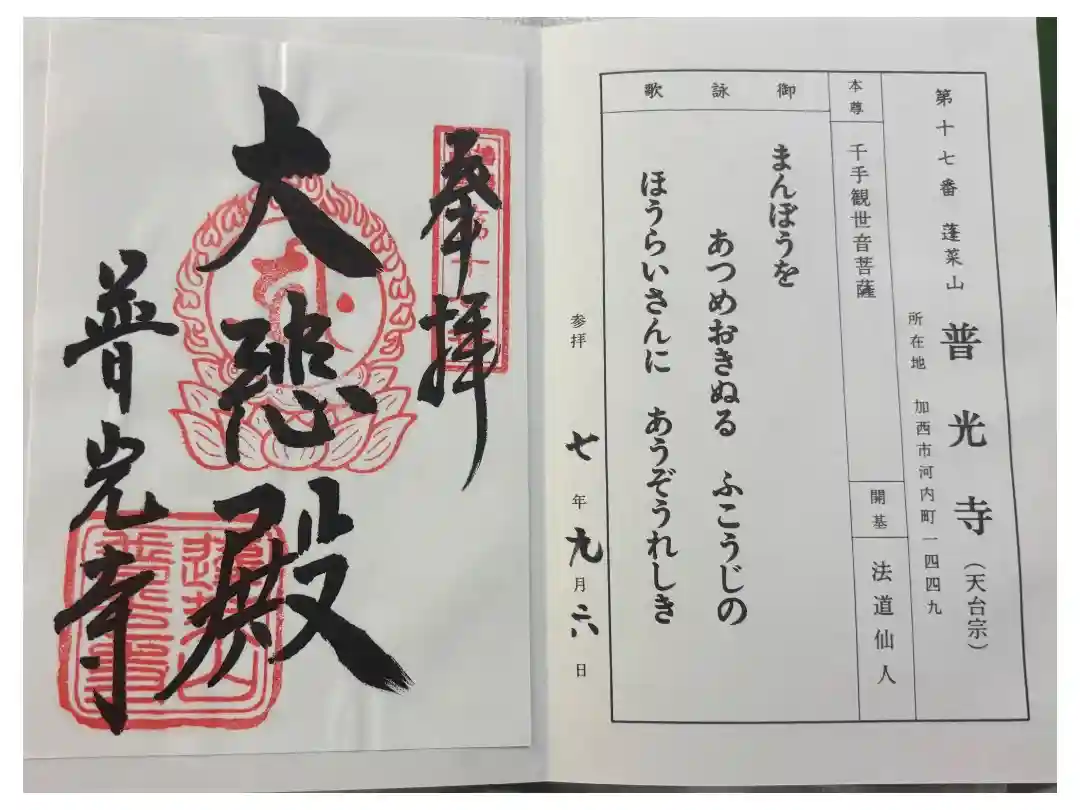 第十七番 蓬莱山 普光寺(天台宗)
所在地 加西市河内町一四四九
本尊 千手観世音菩薩
開基 法道仙人
御詠歌
まんぽうを
あつめおきぬる ふこうじの
ほうらいさんに あうぞうれしき
参拝 七年九月六日
奉拝
大悲殿
普光寺